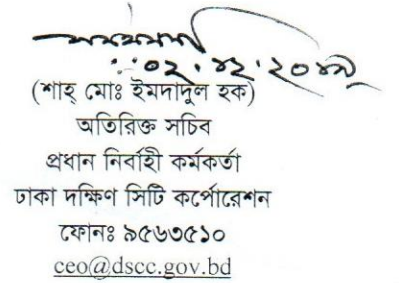 ০২.১২.২০১৯
(শাহ্ মোঃ ইমদাদুল হক)
অতিরিক্ত সচিব
প্রধান নির্বাহী কর্মকর্তা
ঢাকা দক্ষিণ সিটি কর্পোরেশন
ফোনঃ ৯৫৬৩৫১০
ceo@dscc.gov.bd